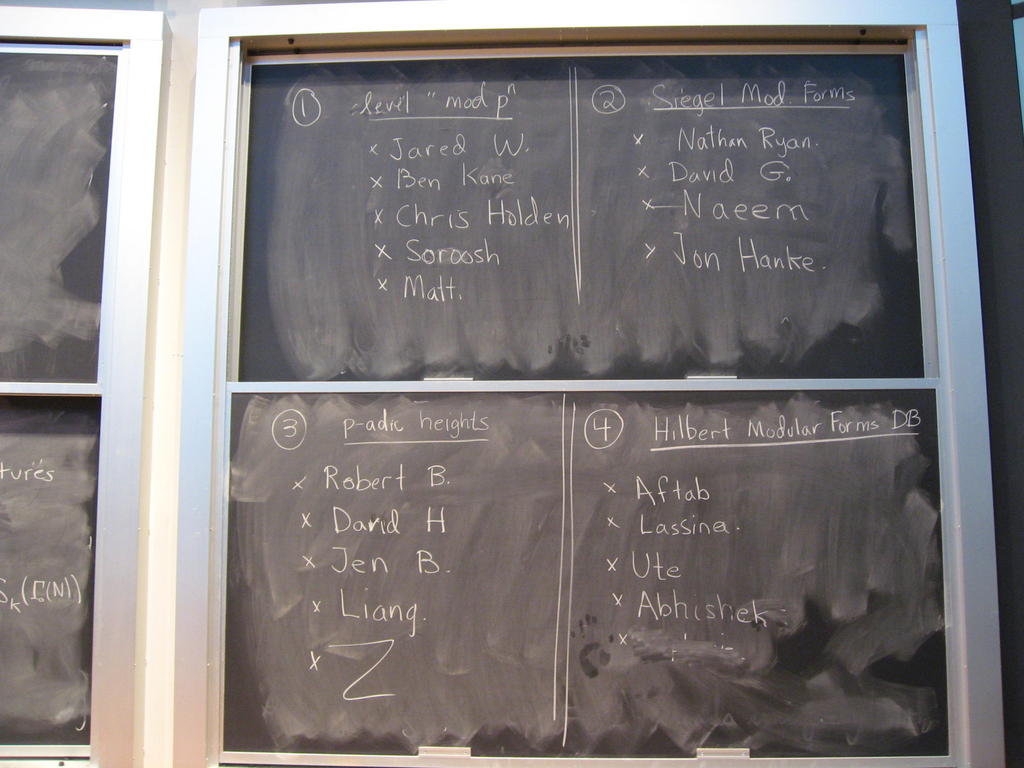 tures
S_k(Γ_0(N))
① level "mod pⁿ"
x Jared W.
x Ben Kane
x Chris Holden
x Soroosh
x Matt.
② Siegel Mod. Forms
x Nathan Ryan.
x David G.
x Naeem
x Jon Hanke.
③ p-adic heights
x Robert B.
x David H
x Jen B.
x Liang.
x Z
④ Hilbert Modular Forms DB
x Aftab
x Lassina.
x Ute
x Abhishek
x